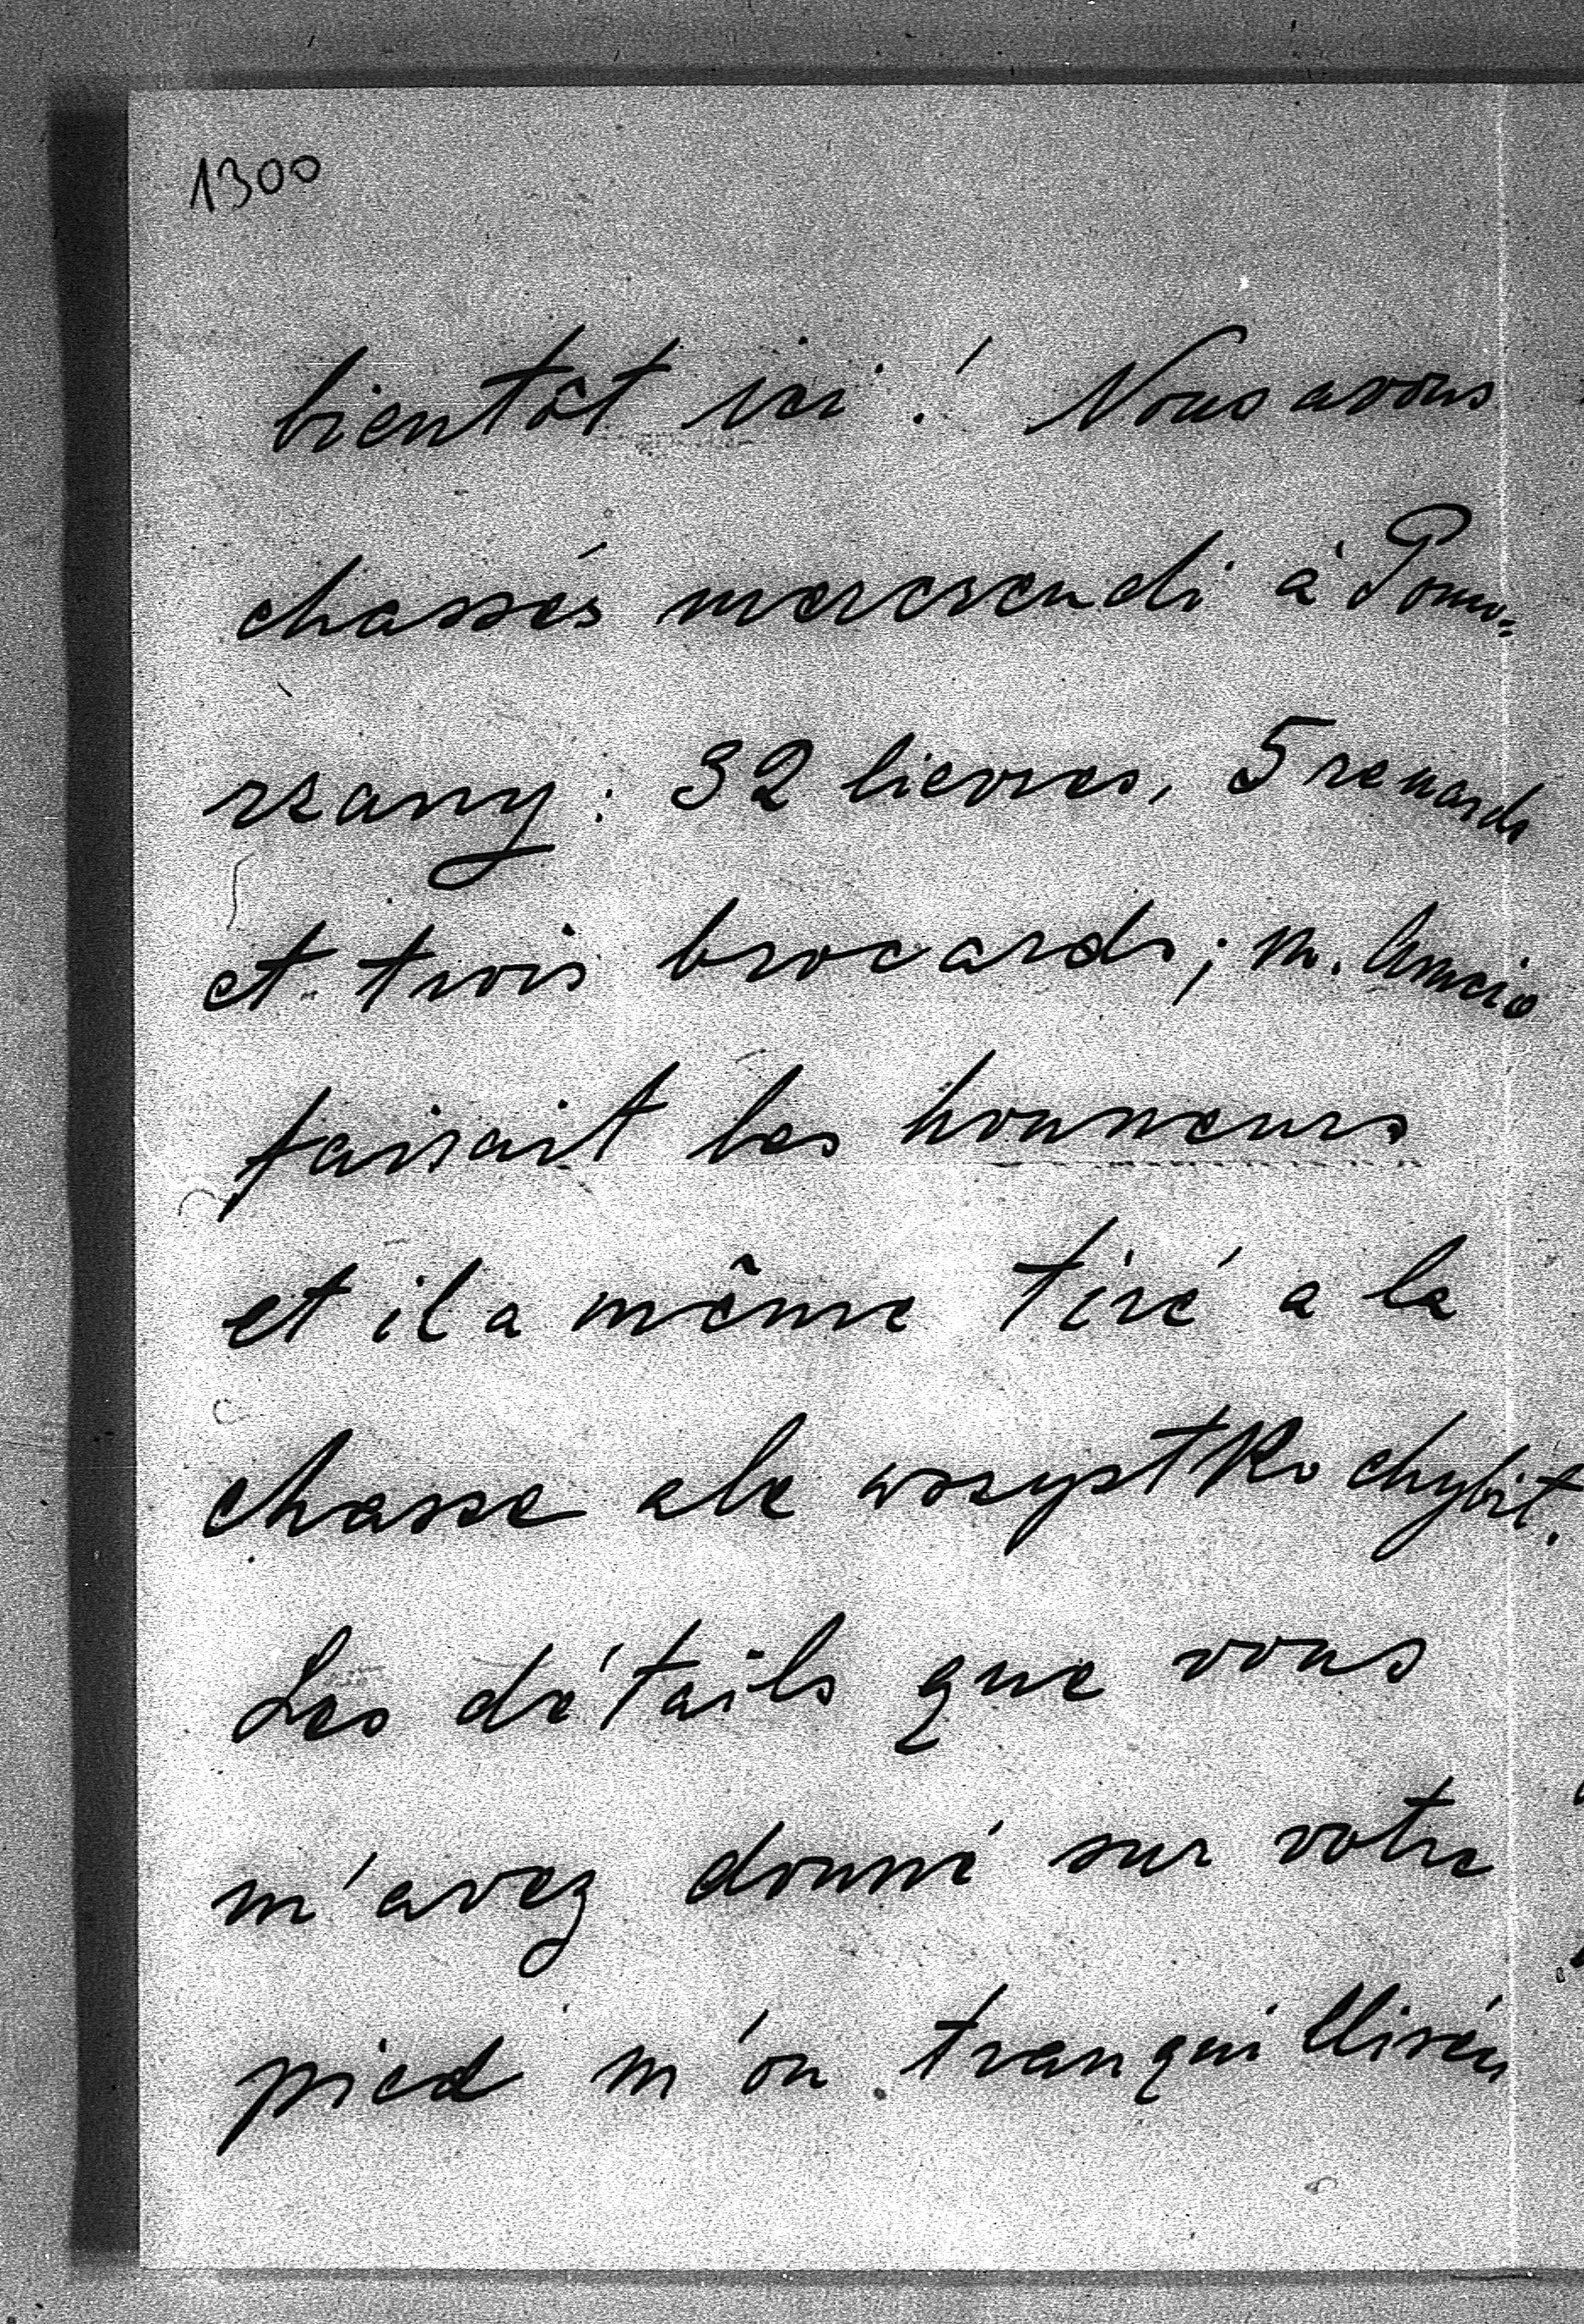 1300
bientôt ici! Nous avons
chassés mercrendi à Pomo-
rzany: 32 lievres, 5 renards
et trois brocards; m.
faisait les honneurs
et il a même tiré a la
chasse ale wszystko chybił.
Les détails que vous
m'avez donné sur votre
pied m'on tranquillisés